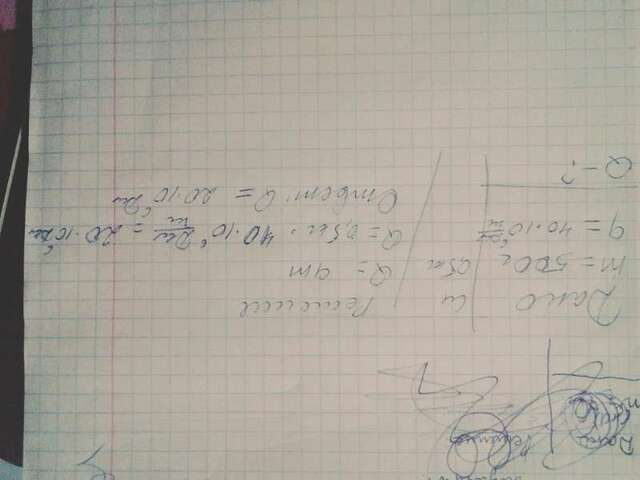 Дано
Решение
Дано СИ Решение
m = 500г 0,5кг Q = qm
q = 40·10⁶ Дж/кг Q = 0,5кг · 40·10⁶ Дж/кг = 20·10⁶ Дж
Q - ? Ответ: Q = 20·10⁶ Дж